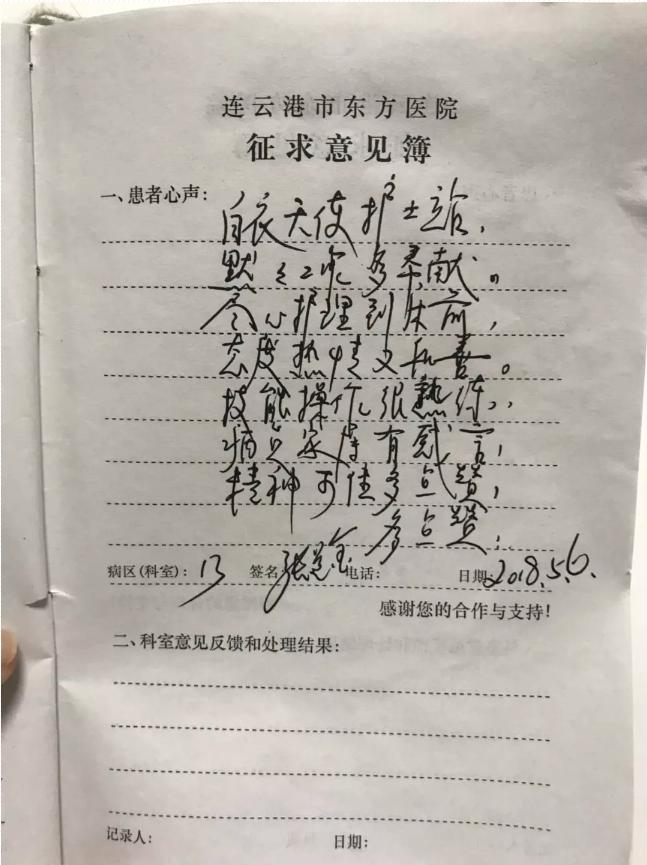 连云港市东方医院
征求意见簿
一、患者心声:
白衣天使护士站,
默默工作多奉献。
尽心护理到床前,
态度热情又和善。
技能操作很熟练,
病只家属有感言,
精神可佳多点赞,
多点赞,
病区(科室): 13 签名 张 电话: 日期 2018.5.6.
感谢您的合作与支持!
二、科室意见反馈和处理结果:
记录人: 日期: